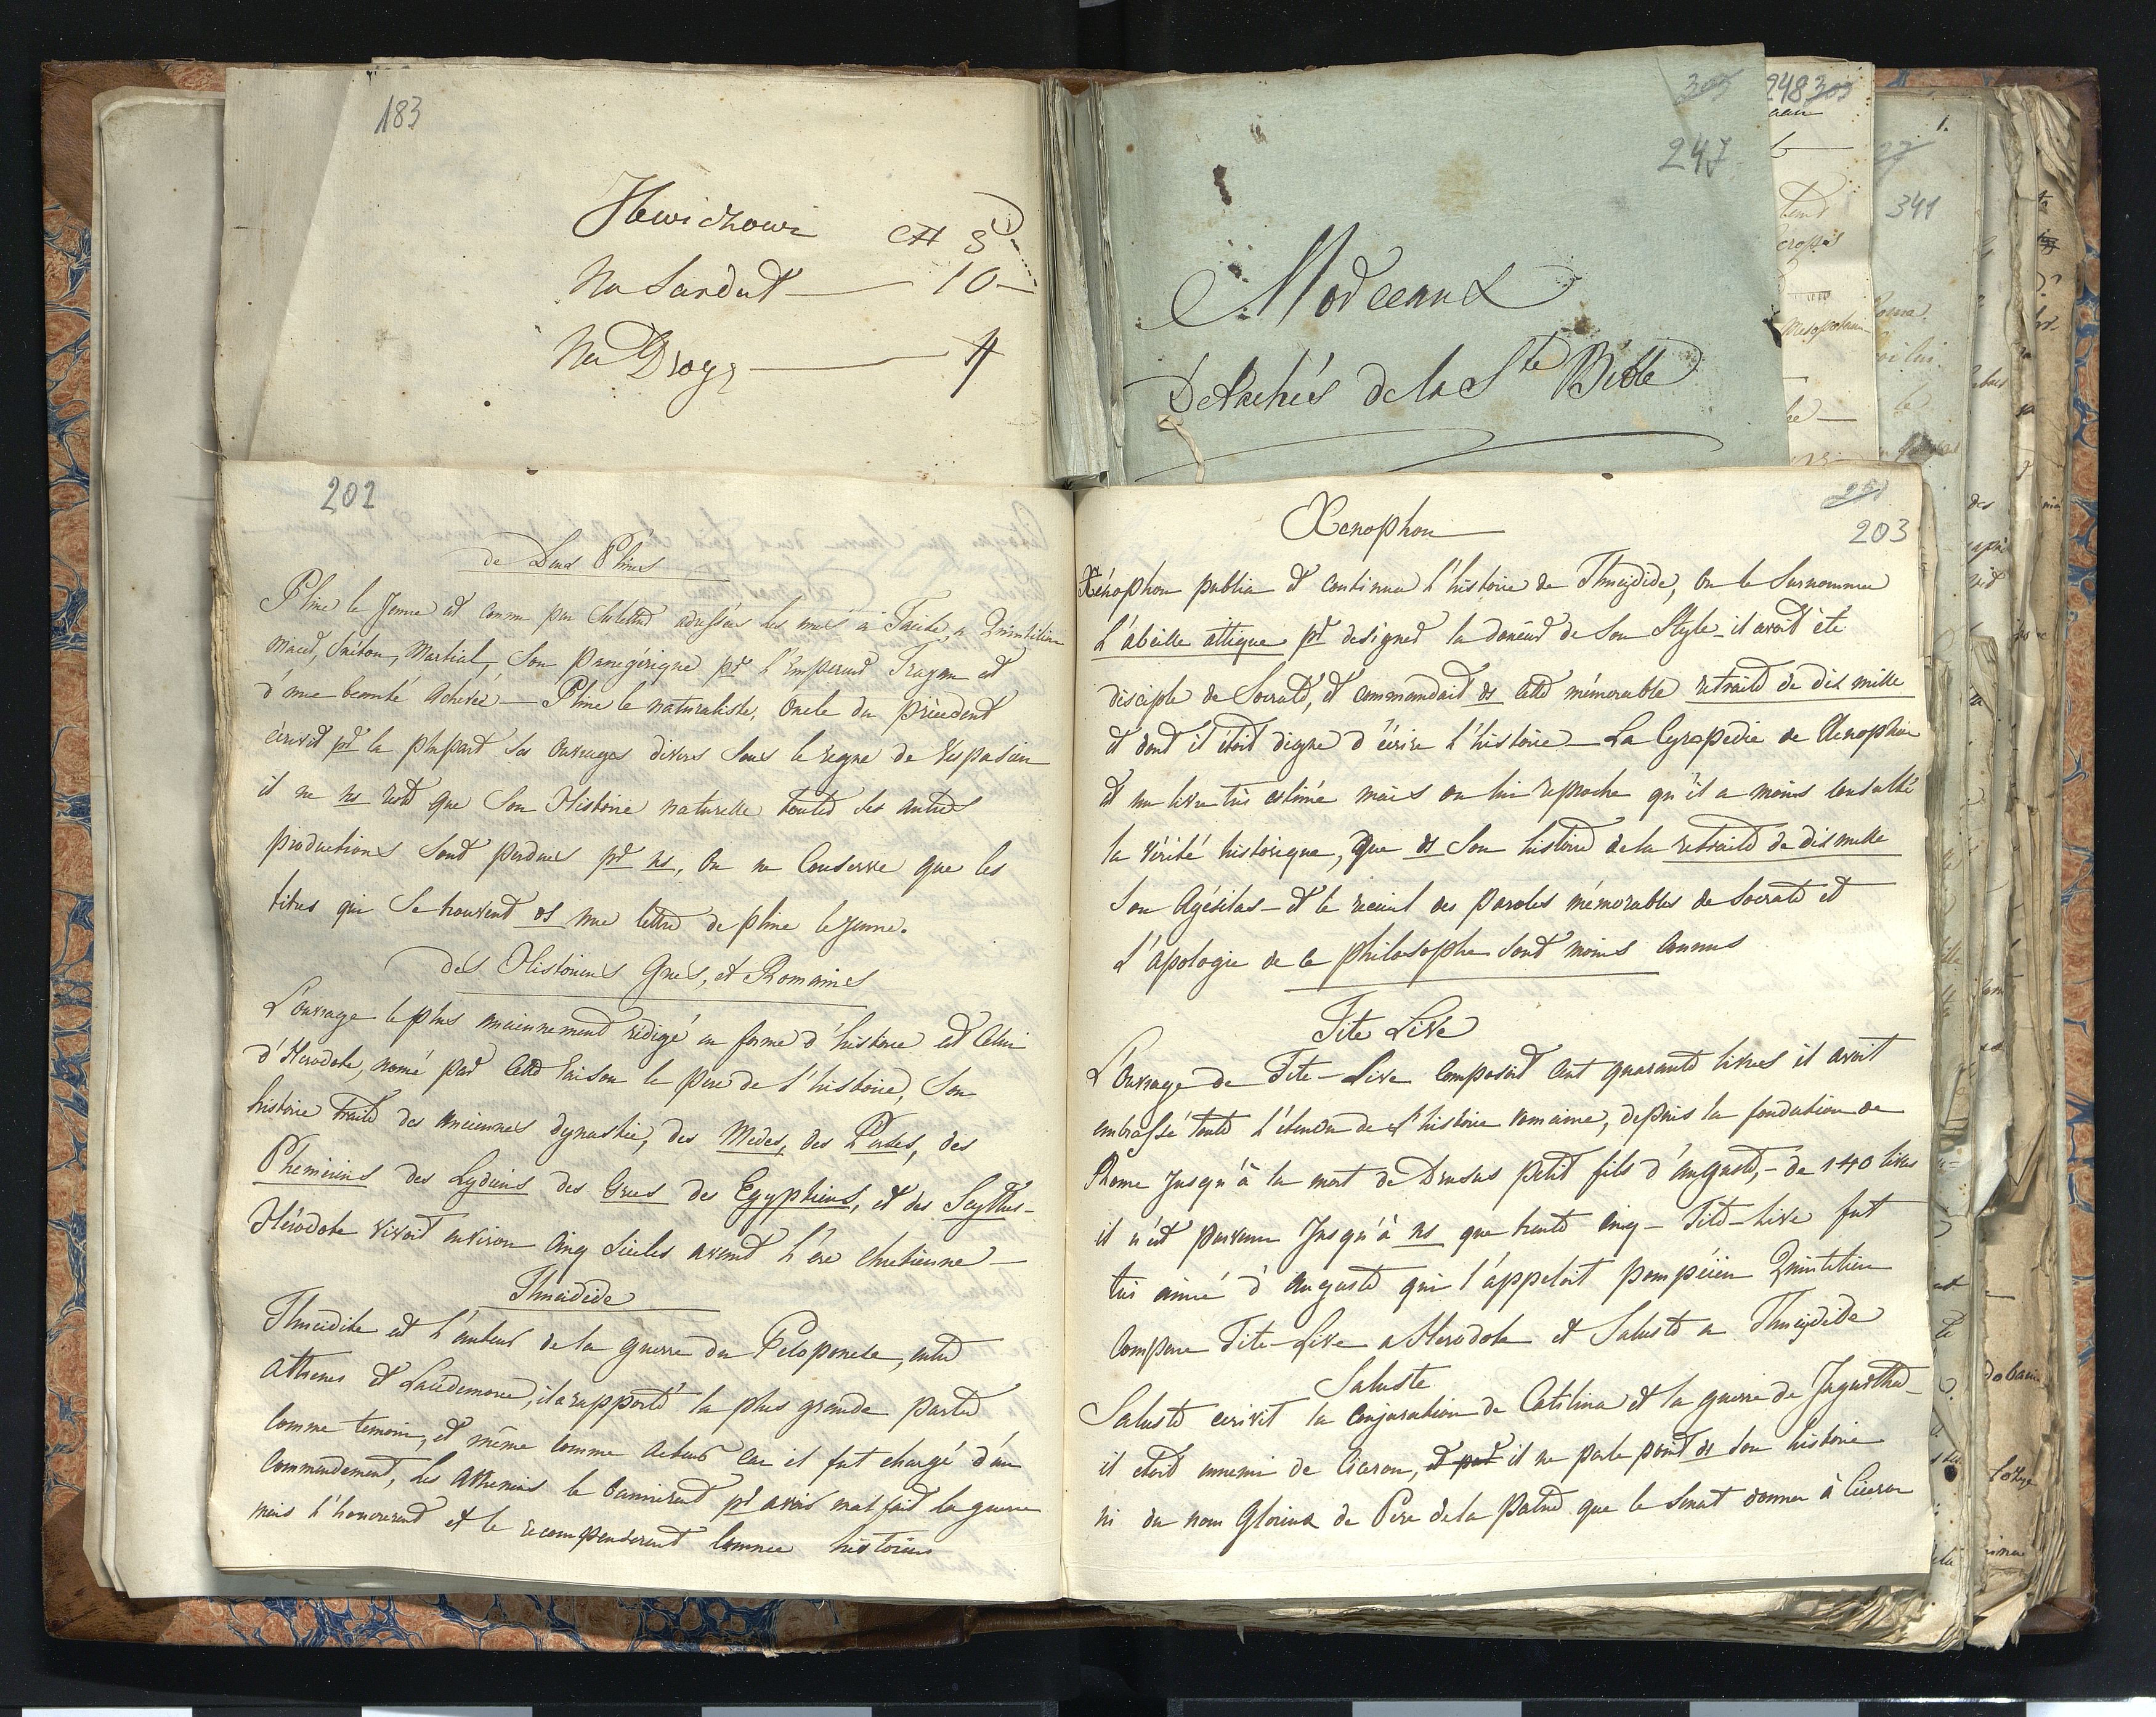 183
Na Sardat — 10 —
Na Drogę — 4
305
247
Morceaux
Détachés de la Ste Bible
248 305
341
1.
202
de Deux Plines
Pline le Jeune est connu par ses lettres adressées les unes à Tacite, a Quintilien
Macer, Suéton, Martial, Son panegérique pr l'Empereur Trajan est
d'une beauté achevée — Pline le naturaliste, Oncle du précedent
écrivit pr la plupart ses ouvrages divers sous le regne de Vespasien
il ne ns reste que son Histoire naturelle toutes ses autres
productions sont perdues pr ns, on ne conserve que les
titres qui se trouvent ds une lettre de pline le jeune.
des Historiens Grecs, et Romains
L'ouvrage le plus anciennement rédigé en forme d'histoire est celui
d'Herodote, nomé par cette raison le pere de l'histoire, Son
histoire traite des anciennes dynastie, des Medes, des Perses, des
Pheniciens des Lydiens des Grecs des Egyptiens, et des Scythes —
Hérodote vivoit environ cinq siècles avant l'ère chretienne —
Thucidide
Thucidite est l'auteur de la guerre du Peloponese, entre
Athenes et Lacédemone, il a rapporté la plus grande partie
comme temoin, et même comme acteur car il fut chargé d'un
commandement, les Atheniens le bannirent pr avoir mal fait la guerre
mais l'honorerent et le recompenserent comme historien
203
Xenophon
Xénophon publia et continua l'histoire de Thucydide, on le surnomma
L'abeille attique pr designer la douceur de son Style — il avoit été
disciple de Socrate, et commandait ds cette mémorable retraite de dix mille
et dont il étoit digne d'écrire l'histoire — La Cyropedie de Xenophon
est un livre très estimé mais on lui reproche qu'il a moins consulté
la vérité historique, que ds son histoire de la retraite de dix mille
Son Agésilas — et le recueil des paroles mémorables de Socrate et
L'apologie de ce philosophe sont moins connus
Tite Live
L'ouvrage de Tite-Live composoit cent quarante livres il avoit
embrassé toute l'étendue de l'histoire romaine, depuis la fondation de
Rome jusqu'à la mort de Drusus petit fils d'auguste, — de 140 livres
il n'est parvenu jusqu'à ns que trente cinq — Tite-Live fut
très aimé d'auguste qui l'appeloit pompéien Quintilien
compare Tite-Live a Herodote et Saluste a Thucydide
Saluste
Saluste ecrivit la conjuration de Catilina et la guerre de Jugurtha —
il étoit ennemi de Ciceron, et par il ne parle point ds son histoire
ni du nom glorieux de Pere de la patrie que le senat donna à Ciceron